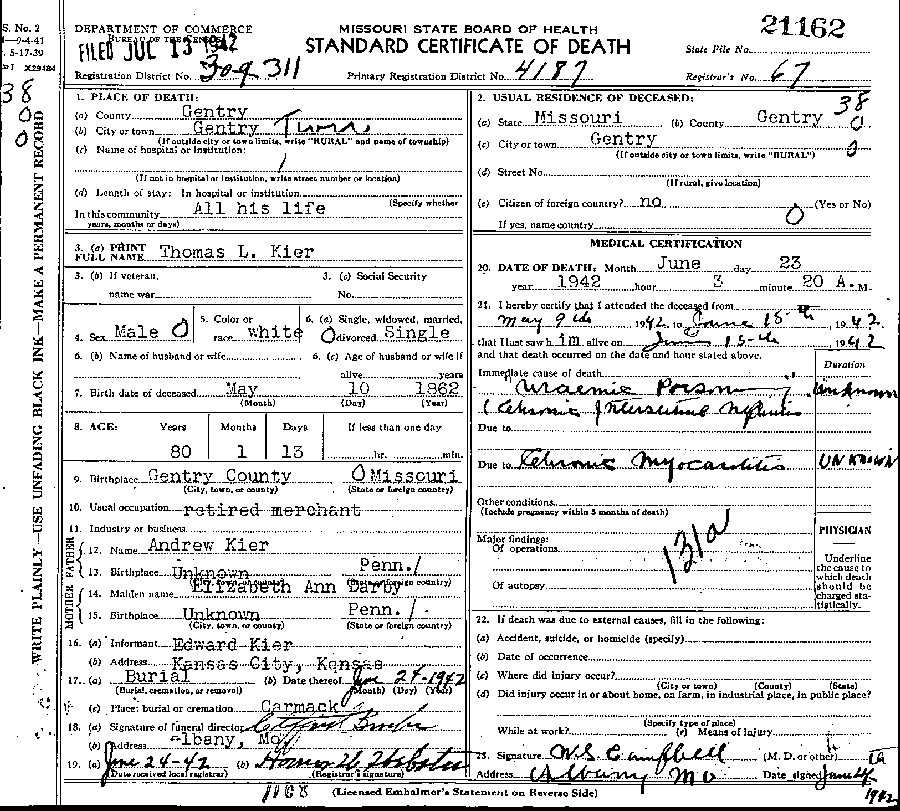 S. No. 2
5-17-39
X29484
DEPARTMENT OF COMMERCE
BUREAU OF THE CENSUS
FILED JUL 13 1942
MISSOURI STATE BOARD OF HEALTH
STANDARD CERTIFICATE OF DEATH
21162
State File No.
Registration District No. 309 311
Primary Registration District No. 4187
Registrar's No. 67
38
0
0
WRITE PLAINLY—USE UNFADING BLACK INK—MAKE A PERMANENT RECORD
1. PLACE OF DEATH:
(a) County Gentry
(b) City or town Gentry
(If outside city or town limits, write "RURAL" and name of township)
(c) Name of hospital or institution:
(If not in hospital or institution, write street number or location)
(d) Length of stay: In hospital or institution
(Specify whether
In this community All his life
years, months or days)
3. (a) PRINT FULL NAME Thomas L. Kier
3. (b) If veteran, name war
3. (c) Social Security No.
4. Sex Male 0
5. Color or race white
6. (a) Single, widowed, married, divorced 0 Single
6. (b) Name of husband or wife
6. (c) Age of husband or wife if alive years
7. Birth date of deceased May 10 1862
(Month) (Day) (Year)
8. AGE: Years Months Days If less than one day
80 1 13 hr. min.
9. Birthplace Gentry County 0 Missouri
(City, town, or county) (State or foreign country)
10. Usual occupation retired merchant
11. Industry or business
FATHER
12. Name Andrew Kier
13. Birthplace Unknown Penn. 1
(City, town, or county) (State or foreign country)
MOTHER
14. Maiden name Elizabeth Ann Darby
15. Birthplace Unknown Penn. 1
(City, town, or county) (State or foreign country)
16. (a) Informant Edward Kier
(b) Address Kansas City, Kansas
17. (a) Burial (b) Date thereof June 24-1942
(Burial, cremation, or removal) (Month) (Day) (Year)
(c) Place: burial or cremation Carmack
18. (a) Signature of funeral director
(b) Address Albany, Mo
19. (a) June 24-42 (b) Homer W Webster
(Date received local registrar) (Registrar's signature)
2. USUAL RESIDENCE OF DECEASED:
38
(a) State Missouri (b) County Gentry 0
(c) City or town Gentry 0
(If outside city or town limits, write "RURAL")
(d) Street No.
(If rural, give location)
(e) Citizen of foreign country? no (Yes or No)
0
If yes, name country
MEDICAL CERTIFICATION
20. DATE OF DEATH: Month June day 23
year 1942 hour 3 minute 20 A. M.
21. I hereby certify that I attended the deceased from
May 9th 1942 to June 15-th, 1942
that I last saw him alive on June 15-th 1942
and that death occurred on the date and hour stated above.
Duration
Immediate cause of death
Uraemic Poison Unknown
(Chronic Interstitial Nephritis
Due to
Due to Chronic Myocarditis UNKNOWN
Other conditions
(Include pregnancy within 3 months of death)
Major findings:
Of operations
131a
Of autopsy
PHYSICIAN
Underline the cause to which death should be charged statistically.
22. If death was due to external causes, fill in the following:
(a) Accident, suicide, or homicide (specify)
(b) Date of occurrence
(c) Where did injury occur?
(City or town) (County) (State)
(d) Did injury occur in or about home, on farm, in industrial place, in public place?
(Specify type of place)
While at work? (e) Means of injury
23. Signature W.S. Campbell (M. D. or other)
Address Albany Mo Date signed June 24
1942
1108
(Licensed Embalmer's Statement on Reverse Side)